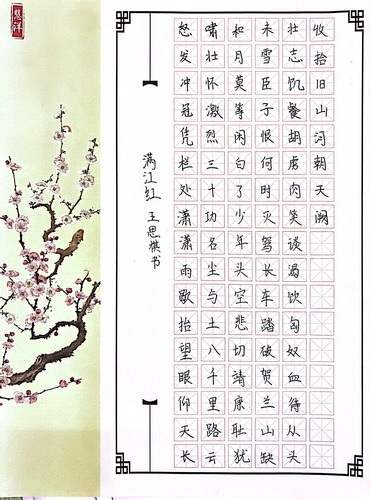 慧洋
满江红 王思棋书
怒发冲冠凭栏处潇潇雨歇抬望眼仰天长
啸壮怀激烈三十功名尘与土八千里路云
和月莫等闲白了少年头空悲切靖康耻犹
未雪臣子恨何时灭驾长车踏破贺兰山缺
壮志饥餐胡虏肉笑谈渴饮匈奴血待从头
收拾旧山河朝天阙